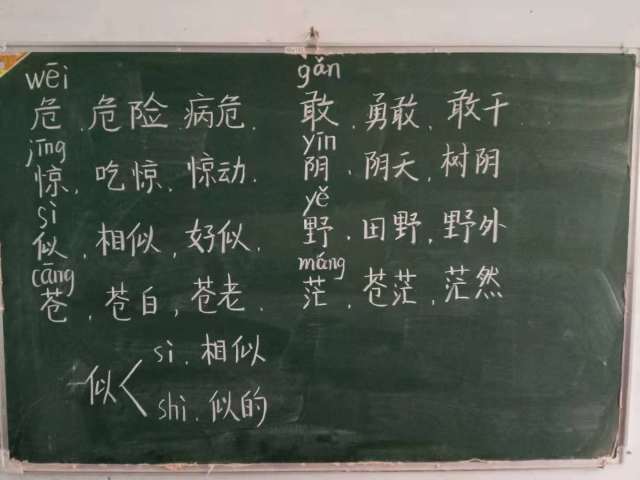 wēi
危、危险、病危、
jīng
惊、吃惊、惊动、
sì
似、相似、好似、
cāng
苍、苍白、苍老、
gǎn
敢、勇敢、敢于
yīn
阴、阴天、树阴
yě
野、田野、野外
máng
茫、苍茫、茫然
似
sì、相似
shì、似的